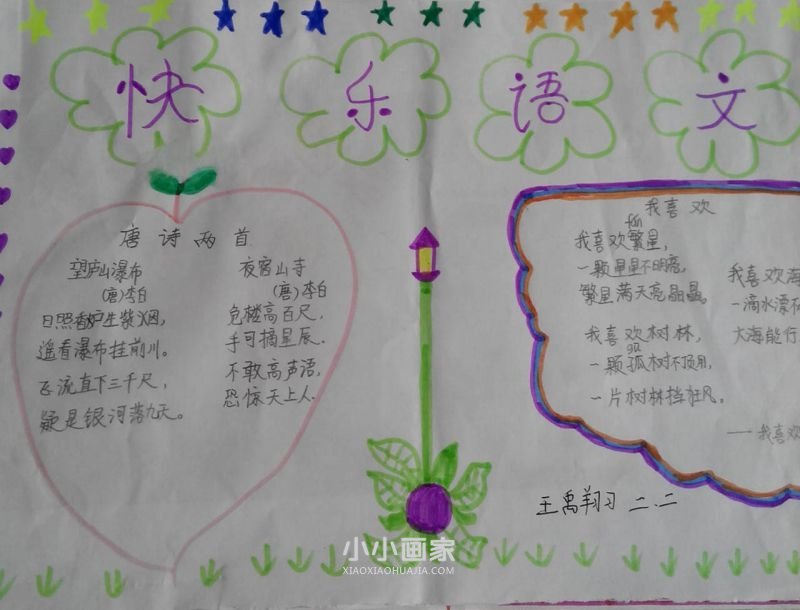 快乐语文
唐诗两首
望庐山瀑布
(唐)李白
日照香炉生紫烟,
遥看瀑布挂前川。
飞流直下三千尺,
疑是银河落九天。
夜宿山寺
(唐)李白
危楼高百尺,
手可摘星辰.
不敢高声语,
恐惊天上人.
我喜欢
fán
我喜欢繁星,
一颗星星不明亮,
繁星满天亮晶晶。
我喜欢树林,
gū
一颗孤树不顶用,
一片树林挡狂风。
我喜欢海
一滴水漂
大海能行
—— 我喜欢
王禹翔习 二.二
小小画家
XIAOXIAOHUAJIA.COM